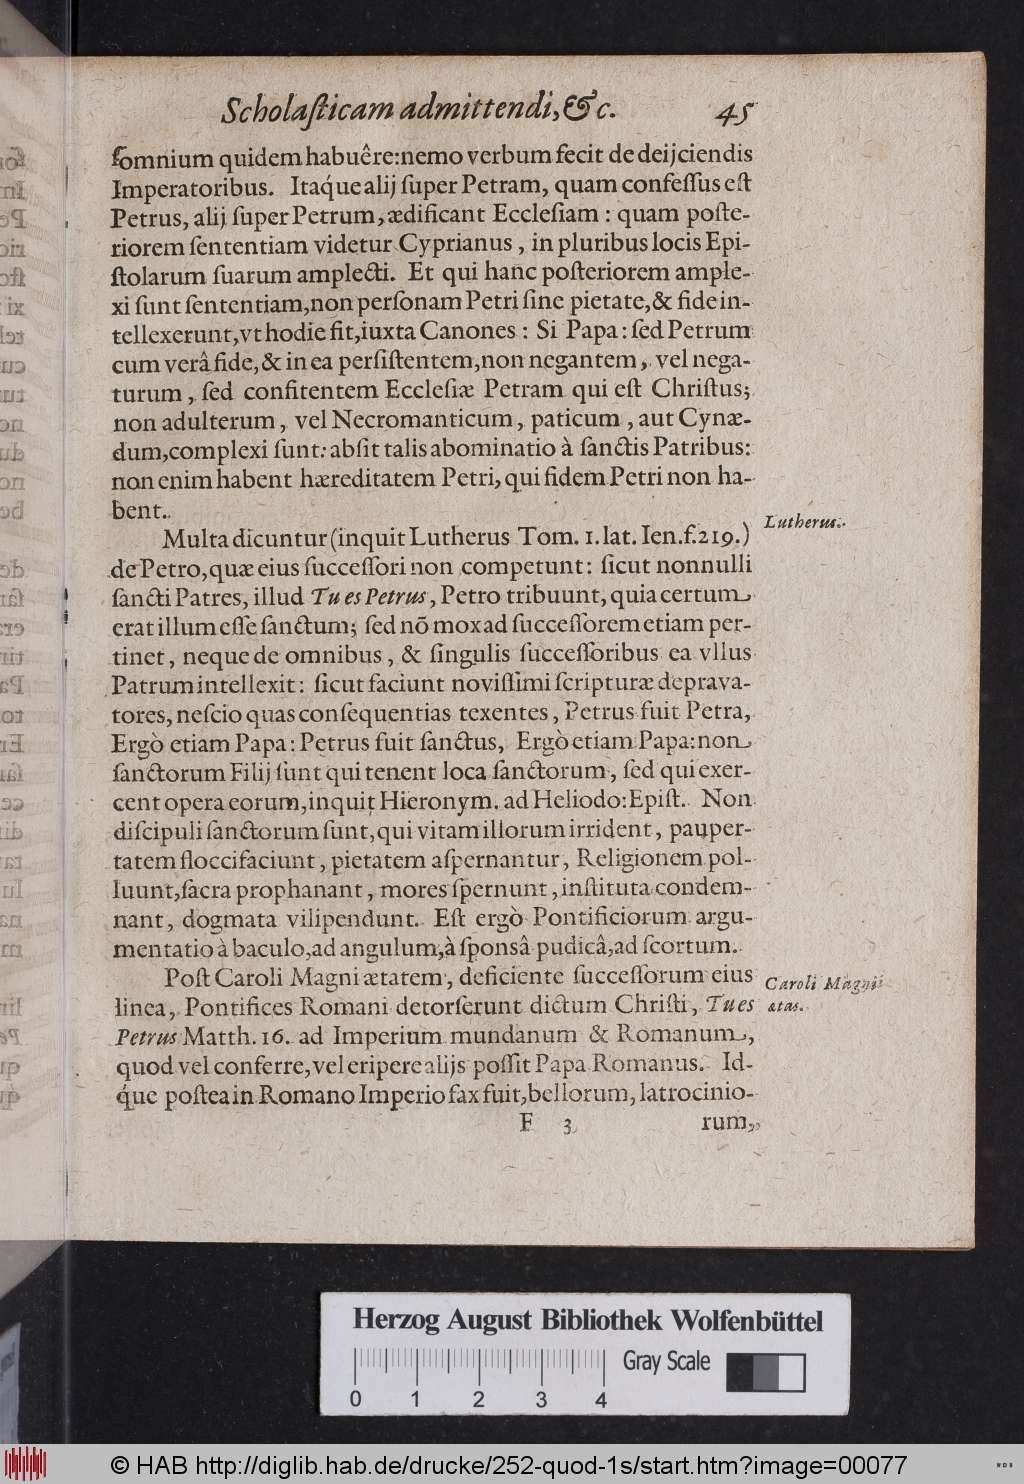 Scholaſticam admittendi, &c. 45
ſomnium quidem habuêre: nemo verbum fecit de deijciendis
Imperatoribus. Itaq́ue alij ſuper Petram, quam confeſſus eſt
Petrus, alij ſuper Petrum, ædificant Eccleſiam : quam poſte-
riorem ſententiam videtur Cyprianus, in pluribus locis Epi-
ſtolarum ſuarum amplecti. Et qui hanc poſteriorem ample-
xi ſunt ſententiam, non perſonam Petri ſine pietate, & fide in-
tellexerunt, vt hodie fit, iuxta Canones : Si Papa: ſed Petrum
cum verâ fide, & in ea perſiſtentem, non negantem, vel nega-
turum, ſed confitentem Eccleſiæ Petram qui eſt Chriſtus;
non adulterum, vel Necromanticum, paticum, aut Cynæ-
dum, complexi ſunt: abſit talis abominatio à ſanctis Patribus:
non enim habent hæreditatem Petri, qui fidem Petri non ha-
bent.
Multa dicuntur (inquit Lutherus Tom. 1. lat. Ien. f. 219.)
Lutherus.
de Petro, quæ eius ſucceſſori non competunt: ſicut nonnulli
ſancti Patres, illud Tu es Petrus, Petro tribuunt, quia certum
erat illum eſſe ſanctum; ſed nõ mox ad ſucceſſorem etiam per-
tinet, neque de omnibus, & ſingulis ſucceſſoribus ea vllus
Patrum intellexit: ſicut faciunt noviſſimi ſcripturæ deprava-
tores, neſcio quas conſequentias texentes, Petrus fuit Petra,
Ergò etiam Papa: Petrus fuit ſanctus, Ergò etiam Papa: non
ſanctorum Filij ſunt qui tenent loca ſanctorum, ſed qui exer-
cent opera eorum, inquit Hieronym. ad Heliodo: Epiſt. Non
diſcipuli ſanctorum ſunt, qui vitam illorum irrident, pauper-
tatem floccifaciunt, pietatem aſpernantur, Religionem pol-
luunt, ſacra prophanant, mores ſpernunt, inſtituta condem-
nant, dogmata vilipendunt. Eſt ergò Pontificiorum argu-
mentatio à baculo, ad angulum, à ſponsâ pudicâ, ad ſcortum.
Poſt Caroli Magni ætatem, deficiente ſucceſſorum eius
Caroli Magni
ætas.
linea, Pontifices Romani detorſerunt dictum Chriſti, Tu es
Petrus Matth. 16. ad Imperium mundanum & Romanum,
quod vel conferre, vel eripere alijs poſſit Papa Romanus. Id-
q́ue poſtea in Romano Imperio fax fuit, bellorum, latrocinio-
F 3 rum,
Herzog August Bibliothek Wolfenbüttel
0 1 2 3 4 Gray Scale
© HAB http://diglib.hab.de/drucke/252-quod-1s/start.htm?image=00077